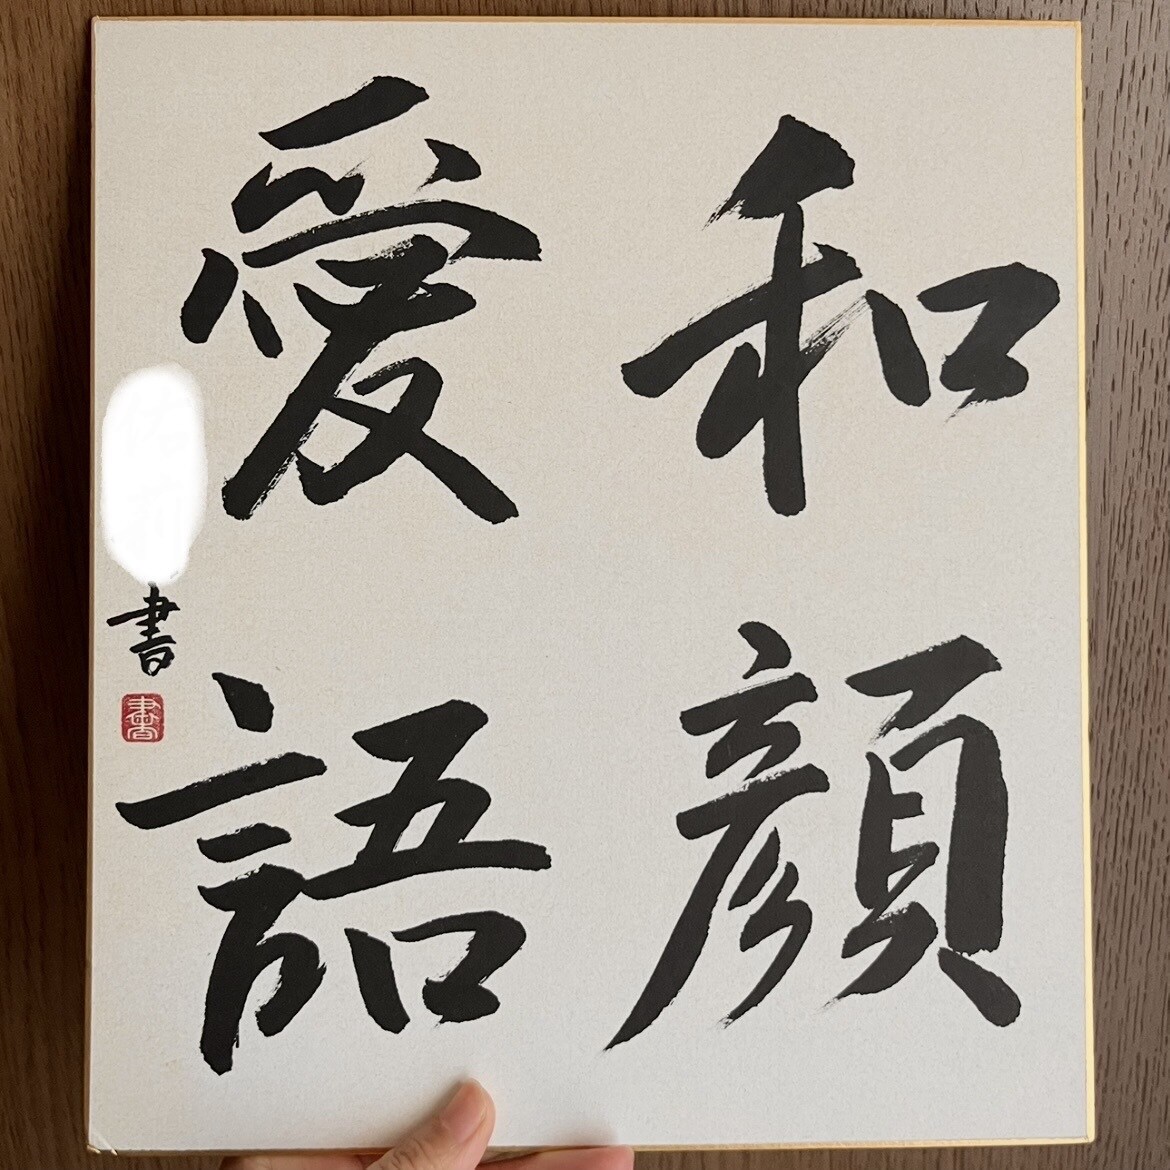 和顔
愛語
書
書